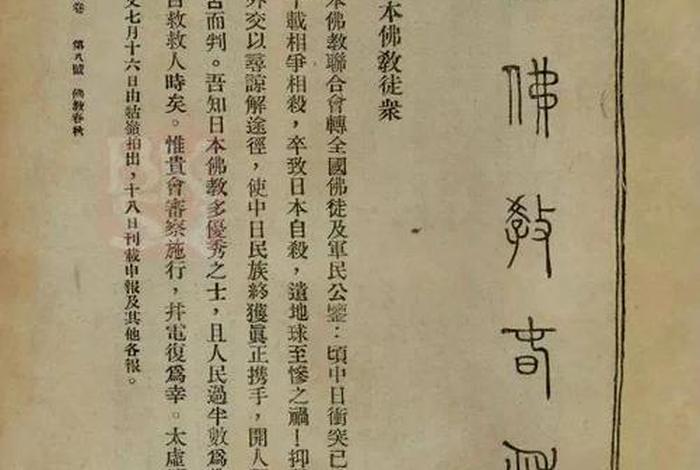 佛教春
本佛教徒衆
本佛教聯合會轉全國佛徒及軍民公鑒：頃中日衝突已
載相爭相殺，卒致日本自殺，遺地球至慘之禍！抑
外交以尋諒解途徑，使中日民族終獲眞正携手，開人
否而判。吾知日本佛教多優秀之士，且人民過半數爲
自救救人時矣。惟貴會審察施行，幷電復爲幸。太虛
文七月十六日由牯嶺拍出，十八日刊載申報及其他各報。
卷 第八號 佛教春秋